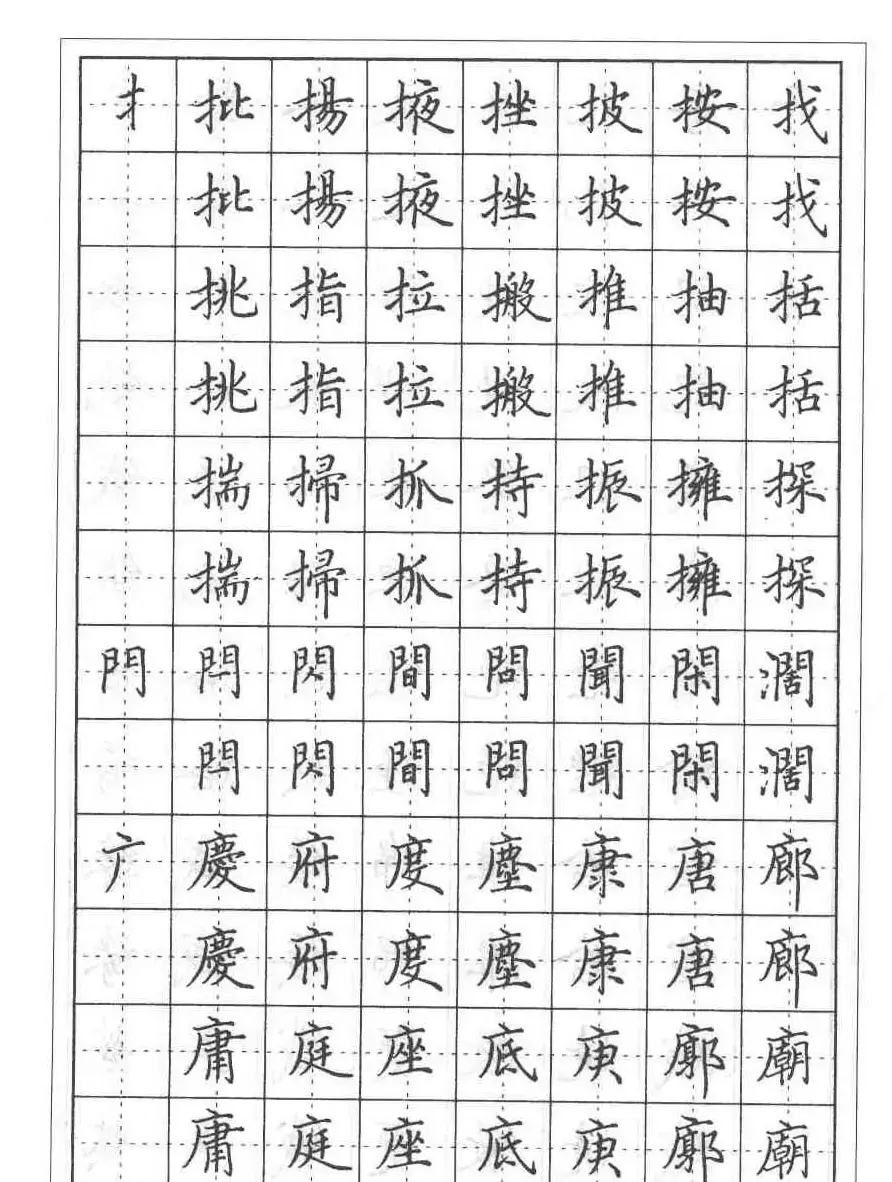 扌批揚掖挫披按找
批揚掖挫披按找
挑指拉搬推抽括
挑指拉搬推抽括
揣掃抓持振擁探
揣掃抓持振擁探
門閂閃間問聞閑濶
閂閃間問聞閑濶
广慶府度塵康唐廊
慶府度塵康唐廊
庸庭座底庚廓廟
庸庭座底庚廓廟